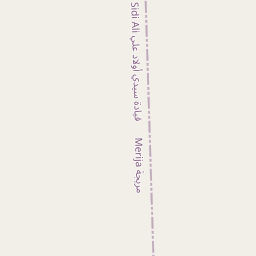 Sidi Ali قيادة سيدي أولاد علي
Merija مريجة